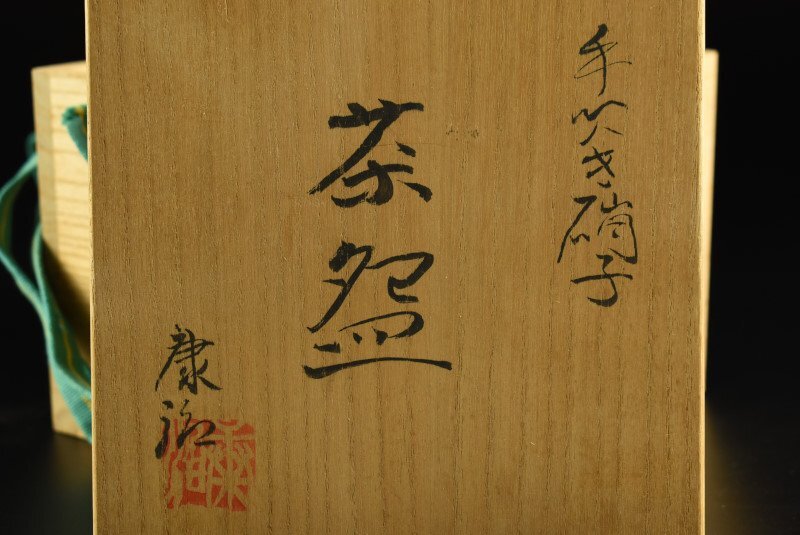 手吹き硝子
茶盌
康治